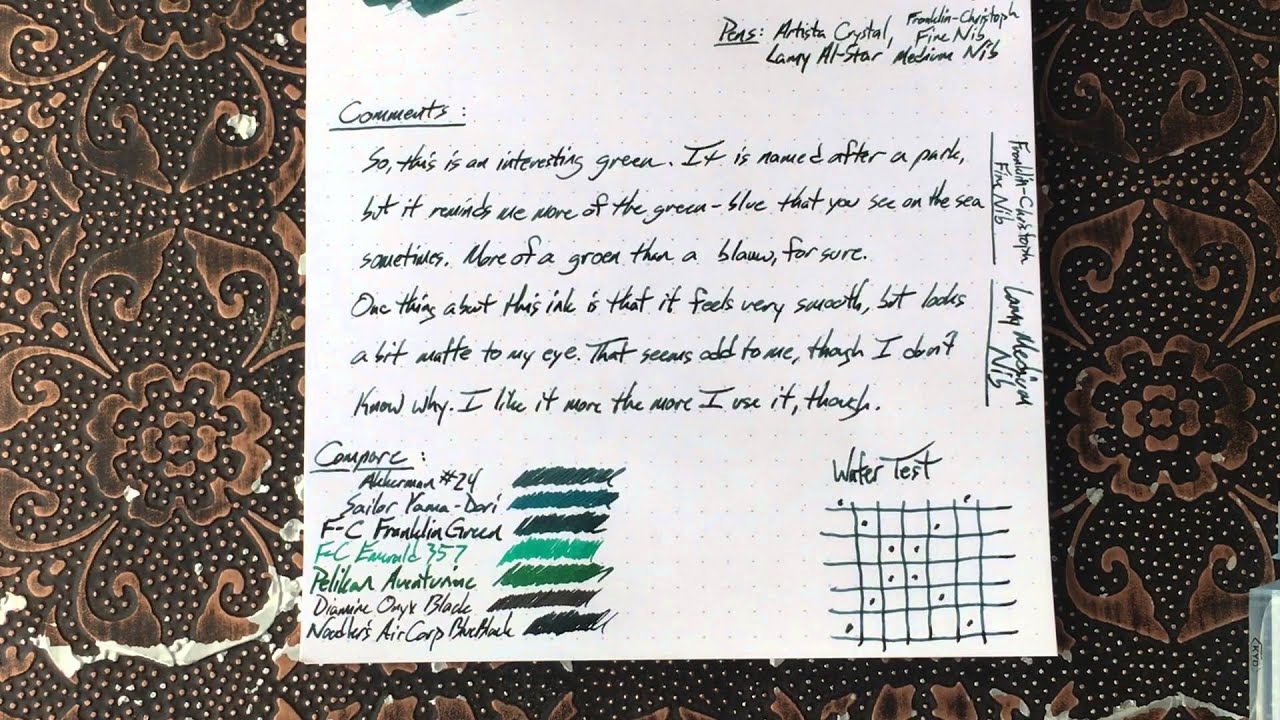 Pens: Artista Crystal, Franklin-Christoph Fine Nib
Lamy Al-Star Medium Nib
Comments:
So, this is an interesting green. It is named after a park,
but it reminds me more of the green-blue that you see on the sea
sometimes. More of a groen than a blauw, for sure.
One thing about this ink is that it feels very smooth, but looks
a bit matte to my eye. That seems odd to me, though I don't
know why. I like it more the more I use it, though.
Franklin-Christoph
Fine Nib
Lamy Medium
Nib
Compare:
Akkerman #24
Sailor Yama-Dori
F-C Franklin Green
F-C Emerald 357
Pelikan Aventurine
Diamine Onyx Black
Noodler's Air Corp Blue Black
Water Test